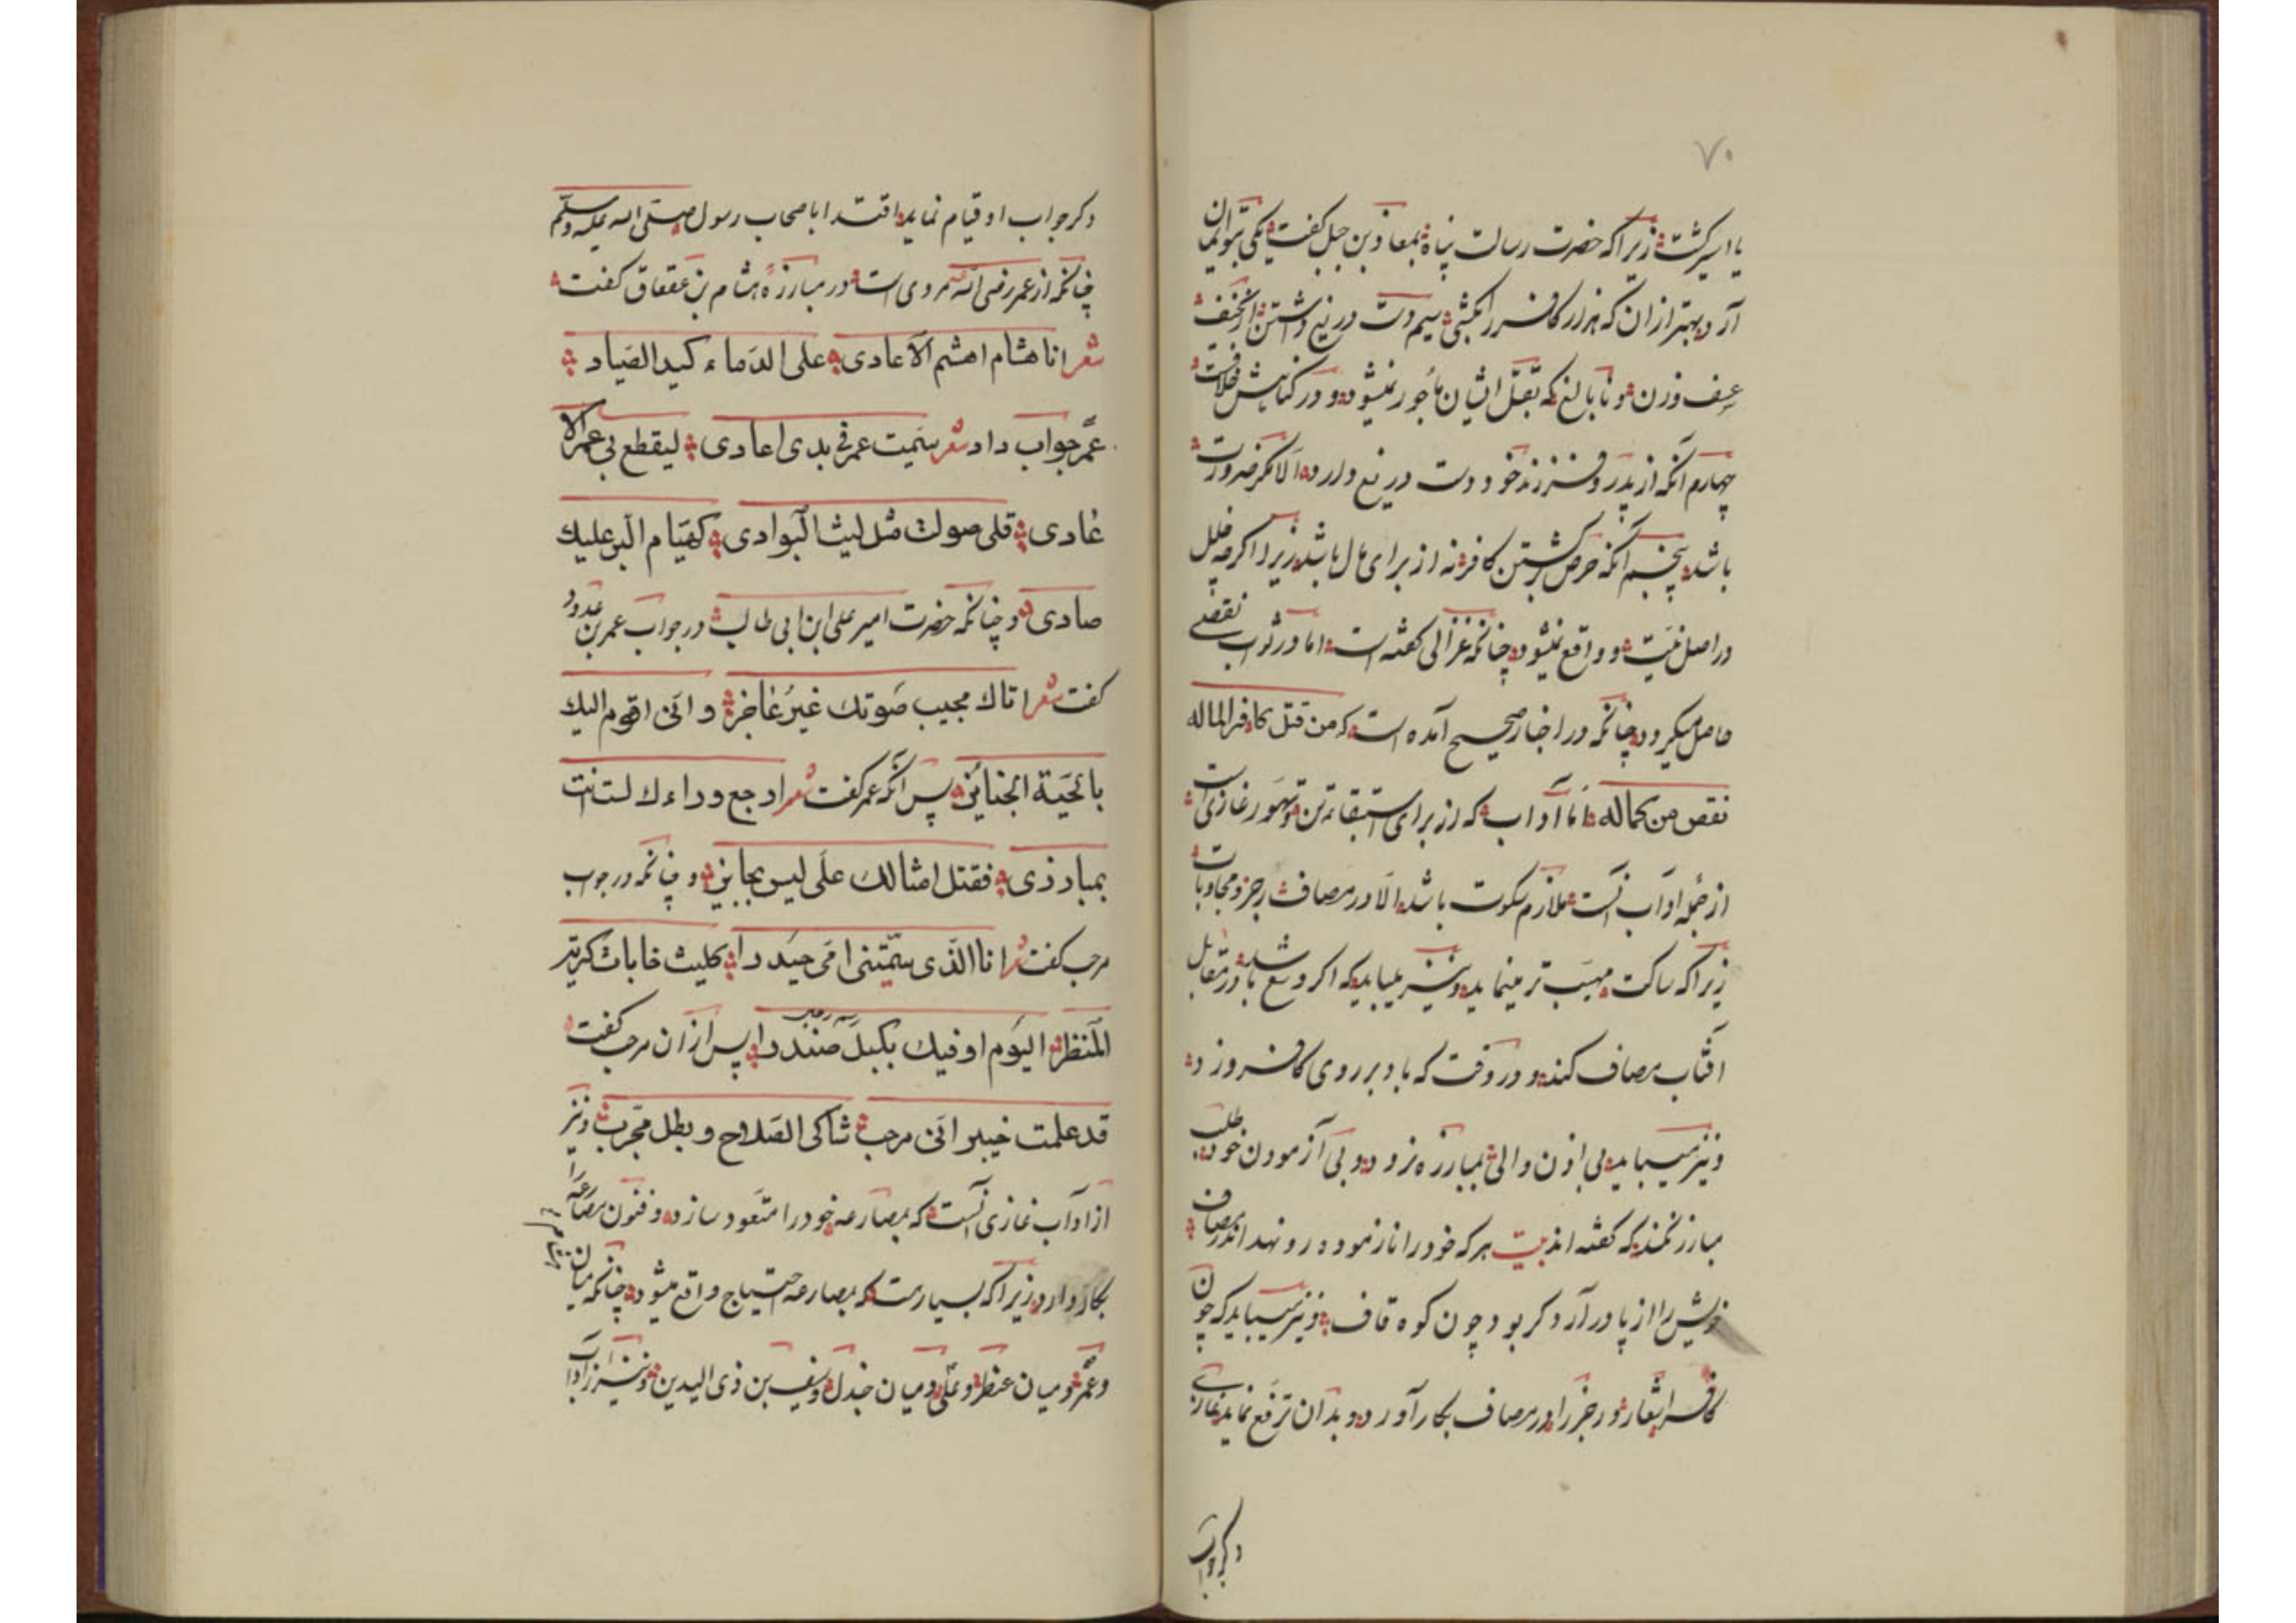 ۷۰
یا اسیر کشت زیرا که حضرت رسالت پناه بمعاذ بن جبل کفت یکی بتو ایمان
آرد بهتر از ان که هزار کافر را بکشی سیم دست دریغ داشتن از
و زن و نابالغ که بقتل ایشان مأجور نمیشود و در
چهارم آنکه از پدر و فرزند خود دست دریغ دارد الا مکر ضرورت
باشد پنجم آنکه حرص بر کشتن کافر نه از برای مال باشد زیرا اکر چه خلل
در اصل نیت و واقع نمیشود چنانکه غزالی کفته است اما در ثواب نقصی
حاصل میکردد چنانکه در اخبار صحیح آمده است که من قتل کافر الماله
نقص من کماله اما آداب که از برای و تهور غازی است
از جمله آداب آنست ملازم سکوت باشد الا در مصاف رجز و مجاوبات
زیرا که ساکت مهیب تر مینماید و نیز میباید که اکر در مقابل
آفتاب مصاف کند و در وقت که باد بر روی کافر وزد
و نیز میباید بی اذن والی بمبارزه نرود و بی آزمودن خود طلب
مبارز نکند که کفته اند بیت هر که خود را نازموده رو نهد اندر مصاف
خویش را از پا در آرد کر بود چون کوه قاف و نیز میباید که چون
کافر اشعار و رجز را در مصاف بکار آورد و بدان ترفع نماید غازی
دکر جواب
دکر جواب او قیام نماید اقتدا باصحاب رسول صلی الله علیه وسلم
چنانکه از عمر رضی الله عنه مروی است در مبارزهٔ هشام بن عقعاق کفت
شعر انا هشام اهشم الاعادی علی الدماء کید الصیاد
عمر جواب داد شعر سمیت عمر فی بدی اعادی لیقطع بی عمر الا
عادی قلی صولت مثل لیث البوادی کهیام البر علیك
صادی و چنانکه حضرت امیر علی ابن ابی طالب در جواب عمر بن عبدود
کفت شعر اتاك مجیب صوتك غیر عاجز وانی اقوم الیك
بالحیة الجنائز پس آنکه عمر کفت شعر ارجع وراءك لست انت
بمبارزی فقتل امثالك علی لیس بجایز و چنانکه در جواب
مرحب کفت شعر انا الذی سمتنی امی حیدرا کلیث غابات کریه
المنظر الیوم اوفیك بکیل صندرا پس از ان مرحب کفت
قد علمت خیبر انی مرحب شاکی السلاح وبطل مجرب و نیز
از آداب غازی آنست که بمصارعه خود را متعود سازد و فنون مصارعه را
بکار دارد زیرا که بسیارست که بمصارعه احتیاج واقع میشود چنانکه میان
و عمر و میان عنظر و علی و میان جندل و سیف بن ذی الیدین و نیز از آداب